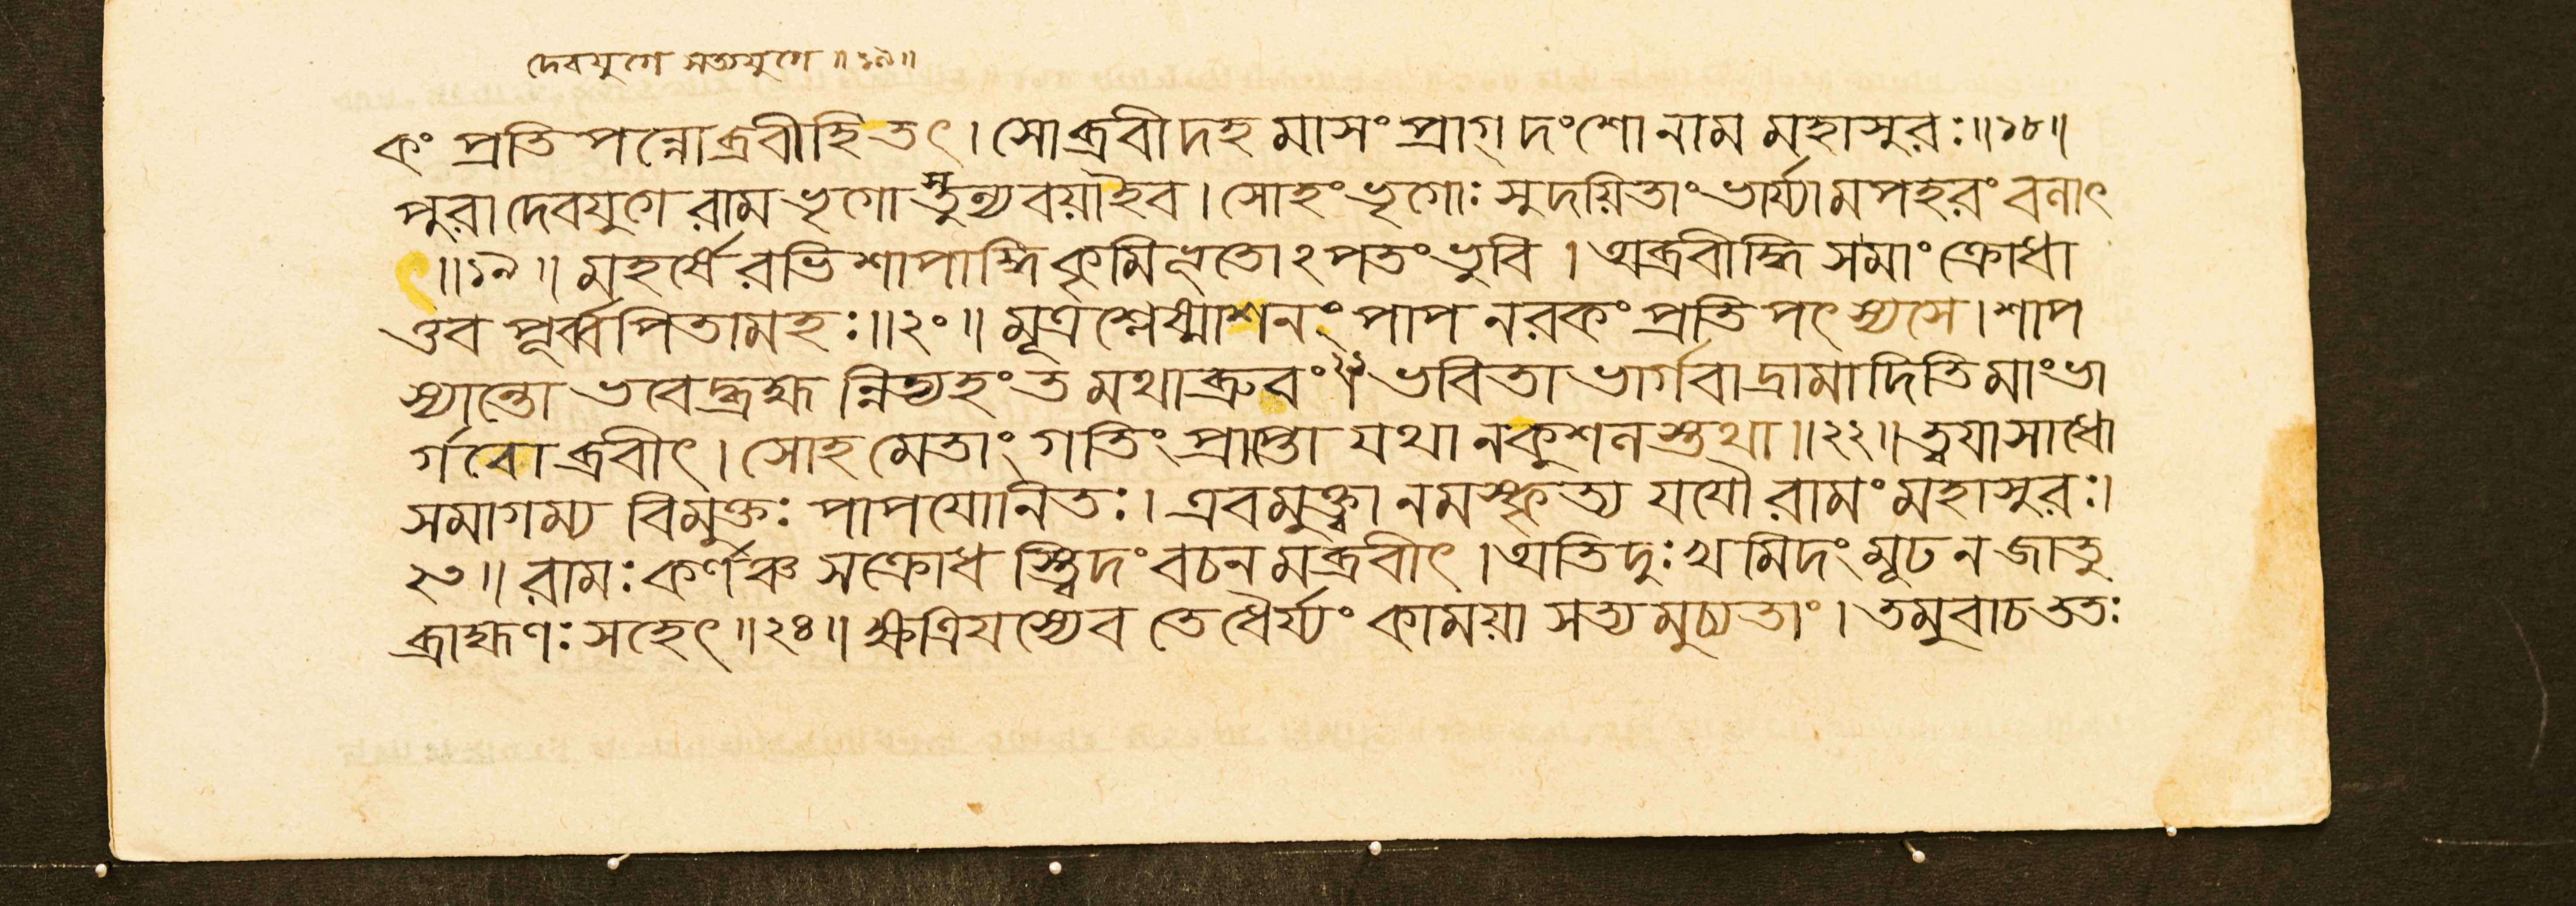 দেবযুগে সত্যযুগে ॥১৯॥
কং প্রতিপন্নোব্রবীহিতৎ। সোব্রবীদহমাসং প্রাগ্ দংশো নাম মহাসুরঃ॥১৮॥
পুরা দেবযুগে রাম ভৃগোস্তুল্যবয়াইব। সোহং ভৃগোঃ সুদয়িতাং ভার্য্যামপহরং বলাৎ
॥১৯॥ মহর্ষেরভিশাপাদ্ধি কৃমিভূতোঽপতং ভুবি। অব্রবীদ্ধি সমাং ক্রোধা
ওব পূর্ব্বপিতামহঃ॥২০॥ মূত্রশ্লেষ্মাশনং পাপ নরকং প্রতিপৎস্যসে। শাপ
স্যান্তো ভবেদ্ব্রহ্মন্নিত্যহং তমথাব্রুবং॥ ভবিতা ভার্গবাদ্রামাদিতি মাং ভা
র্গবোব্রবীৎ। সোহমেতাং গতিং প্রাপ্তো যথা নকুশনস্তথা॥২২॥ ত্বয়া সাধো
সমাগম্য বিমুক্তঃ পাপযোনিতঃ। এবমুক্ত্বা নমস্কৃত্য যযৌ রামং মহাসুরঃ।
২৩॥ রামঃ কর্ণঞ্চ সক্রোধস্ত্বিদং বচনমব্রবীৎ। অতিদুঃখমিদং মূঢ ন জাতু
ব্রাহ্মণঃ সহেৎ॥২৪॥ ক্ষত্রিয়স্যেব তে ধৈর্য্যং কাময়া সত্যমুচ্যতাং। তমুবাচ ততঃ